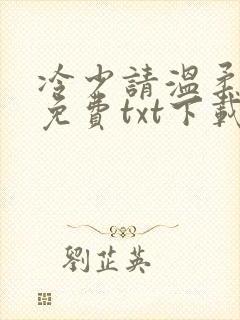 冷少請溫柔
免費txt下載
劉芷英